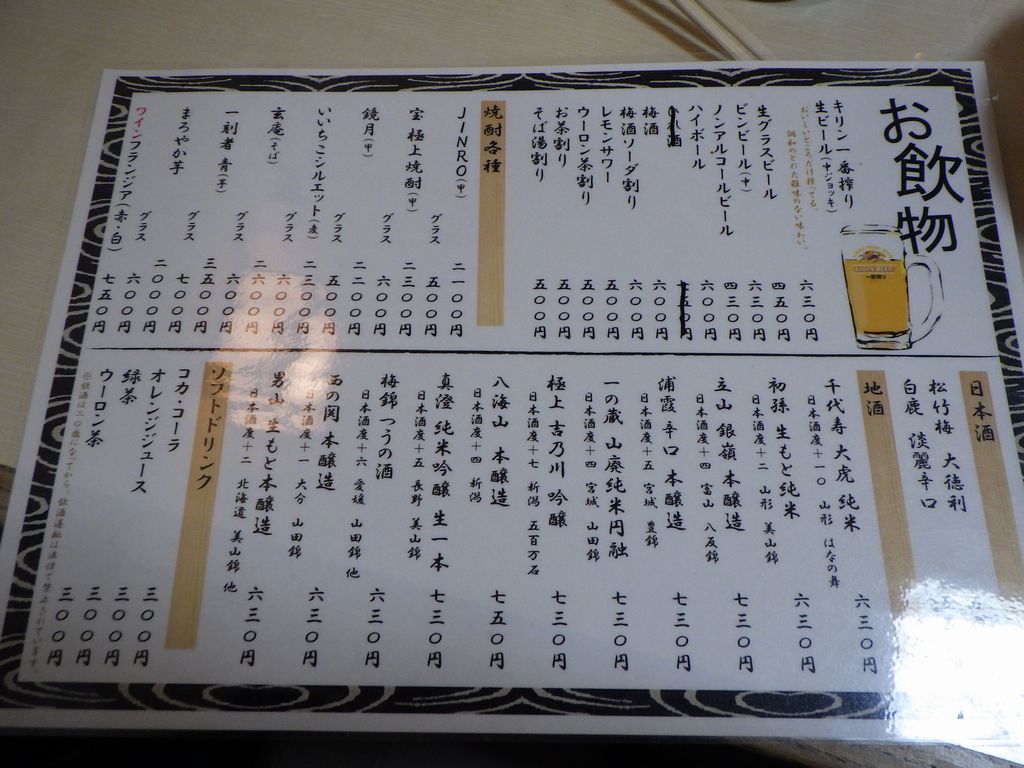 お飲物
キリン一番搾り
生ビール(中ジョッキ) 六三〇円
おいしいところだけ搾ってる。
調和のとれた雑味のない味わい。
生グラスビール 四五〇円
ビンビール(中) 六三〇円
ノンアルコールビール 四三〇円
ハイボール 六〇〇円
梅酒 六〇〇円
梅酒ソーダ割り 六〇〇円
レモンサワー 五〇〇円
ウーロン茶割り 五〇〇円
お茶割り 五〇〇円
そば湯割り 五〇〇円
焼酎各種
JINRO(甲) 二一〇〇円
グラス 五〇〇円
宝 極上焼酎(甲) 二三〇〇円
六〇〇円
鏡月(甲) 二二〇〇円
グラス 五〇〇円
いいちこシルエット(麦) 二三〇〇円
グラス 六〇〇円
玄庵(そば) 二六〇〇円
グラス 六〇〇円
一刻者 青(芋) 三五〇〇円
グラス 七〇〇円
まろやか芋 二〇〇〇円
グラス 六〇〇円
ワインフランジア(赤・白) 七五〇円
日本酒
松竹梅 大徳利
白鹿 淡麗辛口
地酒
千代寿 大虎 純米 六三〇円
日本酒度+一〇 山形 はなの舞
初孫 生もと純米 六三〇円
日本酒度+二 山形 美山錦
立山 銀嶺 本醸造 七三〇円
日本酒度+四 富山 八反錦
浦霞 辛口 本醸造 七三〇円
日本酒度+五 宮城 豊錦
一の蔵 山廃純米円融 七三〇円
日本酒度+四 宮城 山田錦
極上 吉乃川 吟醸 七三〇円
日本酒度+七 新潟 五百万石
八海山 本醸造 七五〇円
日本酒度+四 新潟
真澄 純米吟醸 生一本 七三〇円
日本酒度+五 長野 美山錦
梅錦 つうの酒 六三〇円
日本酒度+六 愛媛 山田錦 他
西の関 本醸造 六三〇円
日本酒度+一 大分 山田錦
男山 生もと本醸造 六三〇円
日本酒度+二 北海道 美山錦 他
ソフトドリンク
コカ・コーラ 三〇〇円
オレンジジュース 三〇〇円
緑茶 三〇〇円
ウーロン茶 三〇〇円
※飲酒は二〇歳になってから。飲酒運転は法律で禁止されています。